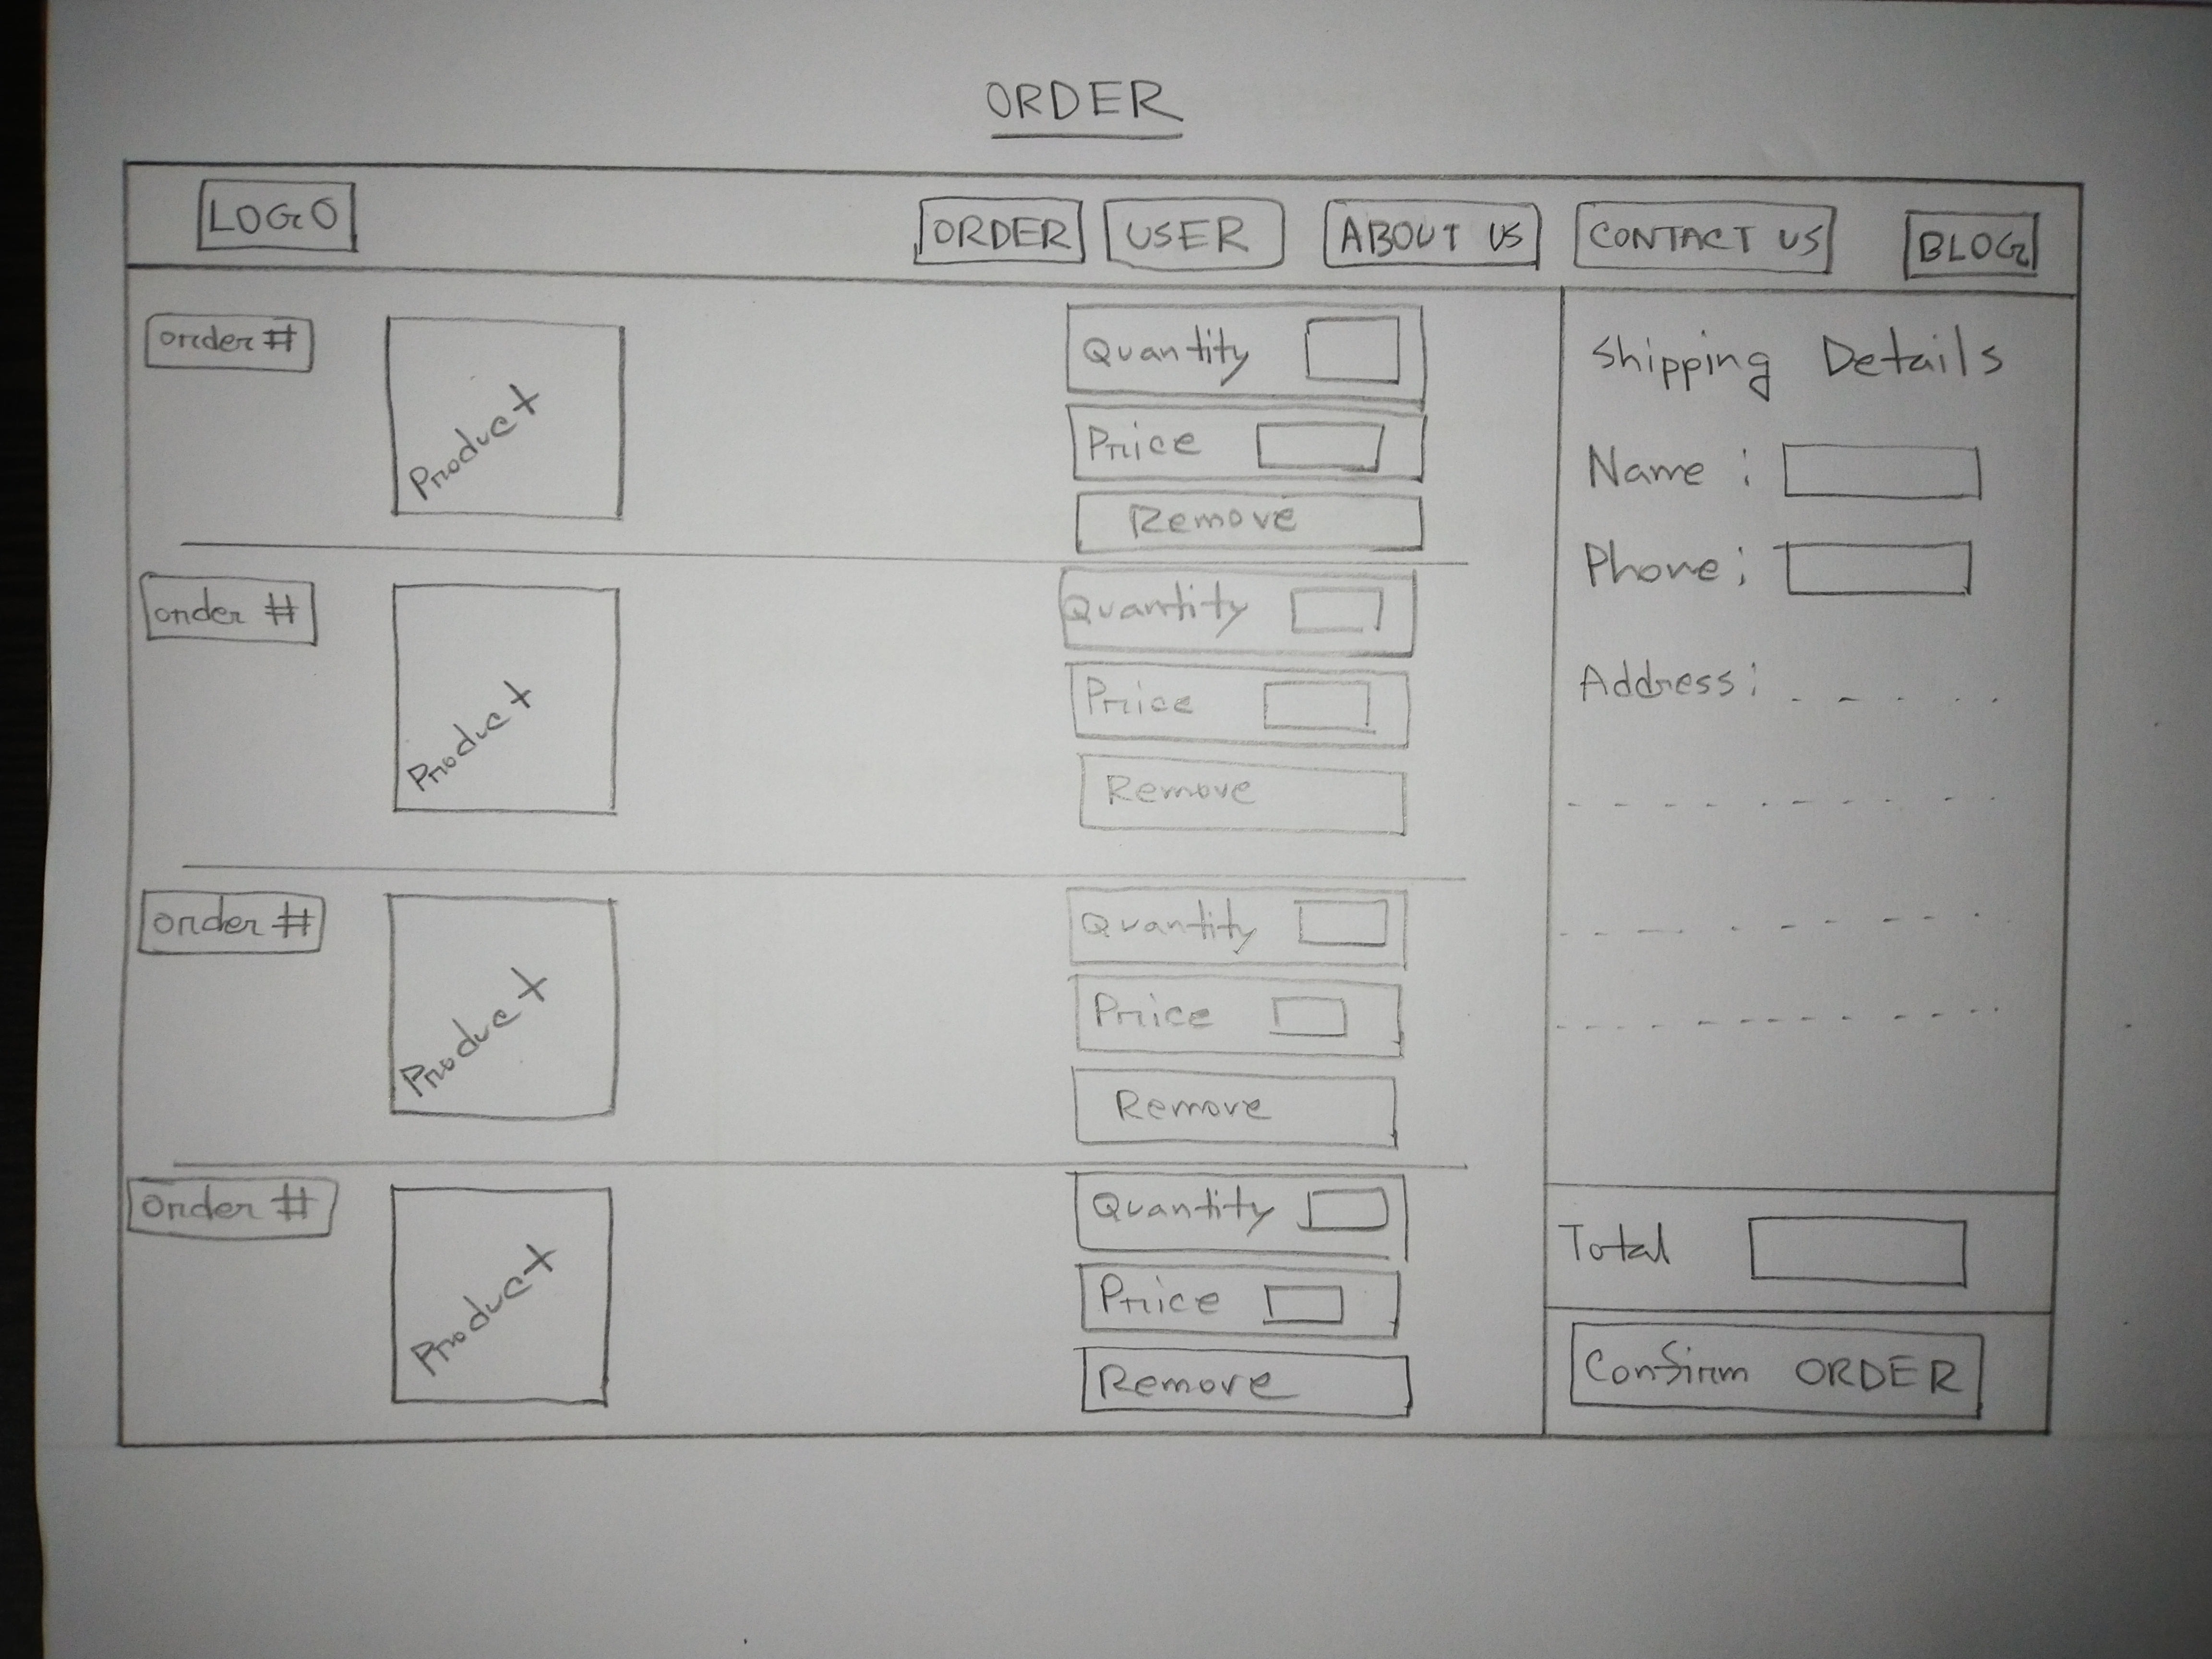 ORDER
LOGO ORDER USER ABOUT US CONTACT US BLOG
order #
Product
Quantity
Price
Remove
order #
Product
Quantity
Price
Remove
order #
Product
Quantity
Price
Remove
order #
Product
Quantity
Price
Remove
Shipping Details
Name :
Phone :
Address :
Total
Confirm ORDER